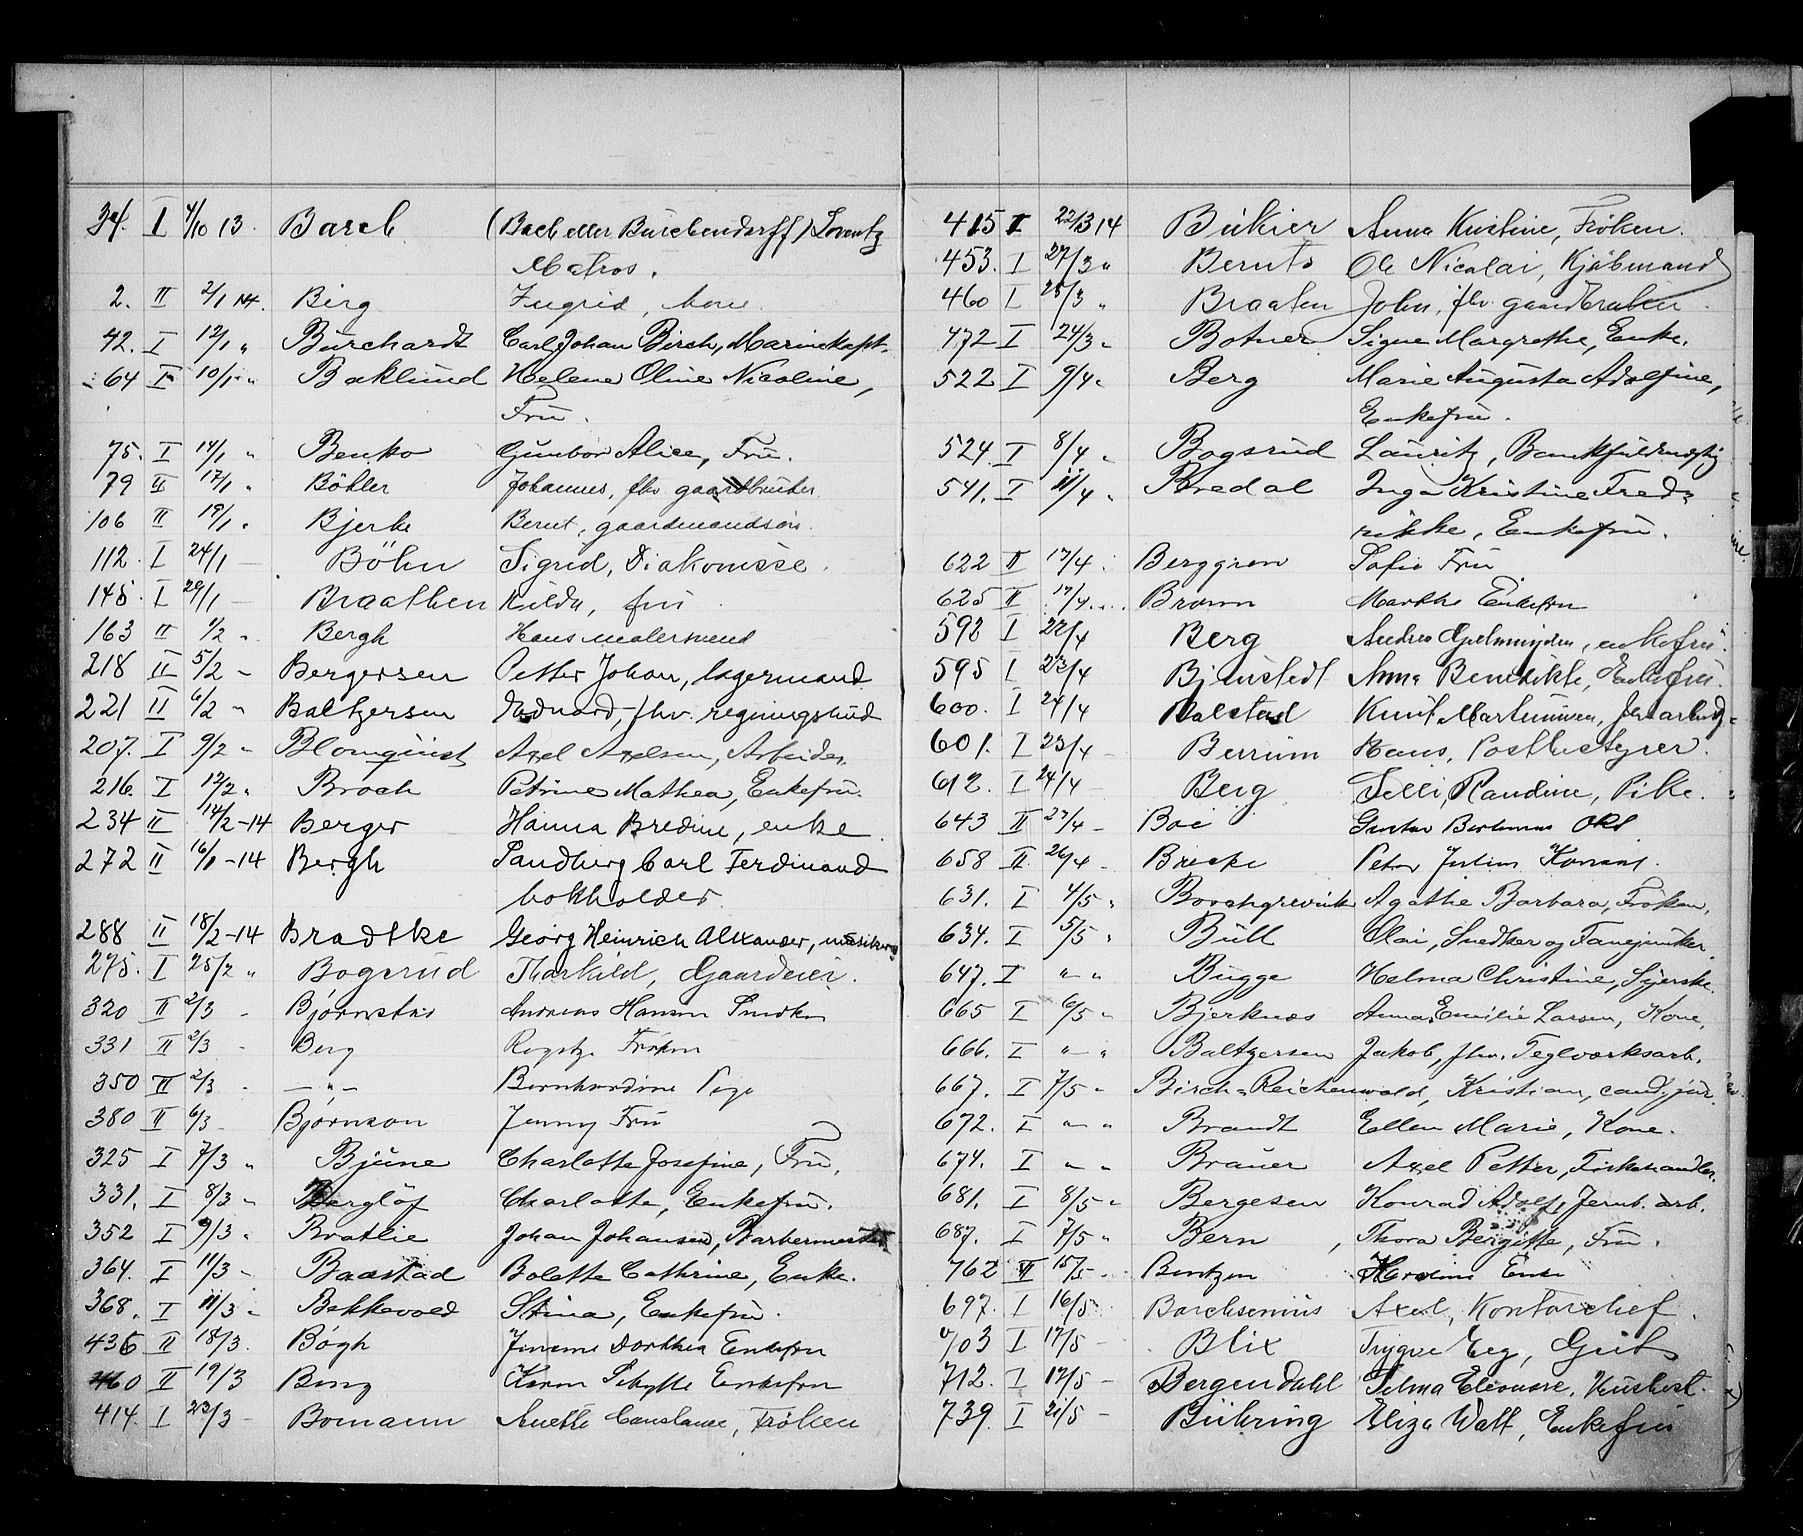 34. I 4/10 13. Barch (Bach eller Burchendorff) Lorentz
Matros.
2. II 2/1 14. Berg Ingrid, kone
42. I 12/1 " Burchardt Carl Johan Birch, Marinekapt.
64 I 10/1 " Baklund Helene Oline Nicoline,
Fru.
75. I 14/1 " Benko Gunbor Alice, Fru.
79 II 17/1 " Böhler Johannes, fhv. gaardbruker
106 II 19/1 " Bjerke Bernt, gaardmandsøn
112. I 24/1 — Böhn Sigrid, Diakonisse.
148. I 29/1 — Braathen Hilda, fru
163 II 1/2 " Bergh Hans malersvend
218 II 5/2 - Bergersen Petter Johan, lagermand
221 II 6/2 " Baltzersen Edvard, fhv. regningsbud
207. I 9/2 " Blomquist Axel Axelsen, Arbeider.
216. I 12/2 " Broch Petrine Mathea, Enkefru.
234 II 14/2-14 Berger Hanna Bredine, enke
272 II 16/1-14 Bergh Sandberg Carl Ferdinand
bokholder.
288 II 18/2-14 Bradtke Georg Heinrich Alexander, musiker
275. I 25/2 " Bogerud Thorkild, Gaardeier.
320 II 2/3 - Bjørnstad Andreas Hansen Snedker
331 II 2/3 - Berg Fröken
350 II 2/3 - — " — Bernhardine Pige
380 II 6/3 - Bjørnson Jenny Fru
325 I 7/3 " Bjune Charlotte Josefine, Fru.
331. I 8/3 " Berglöf Charlotte, Enkefru.
352 I 9/3 " Bratlie Johan Johansen, Barbermester
364. I 11/3 - Baastad Bolette Cathrine, Enke.
368. I 11/3 - Bekkevold Stina, Enkefru.
436 II 18/3. Bögh Dorthea Enkefru
460 II 19/3 Bing Karen Schytte Enkefru
414. I 23/3 - Bomann Anette Constance, Fröken
415 I 22/3 14 Bukier Anna Kristine, Fröken.
453. I 27/3 " Bernts Ole Nicolai, Kjøbmand
460 I 25/3 " Braaten John, fhv. gaardbruker
472 I 24/3 - Botner Signe Margrethe, Enke.
522 I 9/4 " Berg Marie Augusta Adolfine,
Enkefru.
524. I 8/4 " Bogsrud Lauritz,
541. I 11/4 " Bredal Inga Kristine Fred-
rikke, Enkefru.
622 II 17/4. Berggren Sofie Fru
625 II 17/4. Brown Marthe Enkefru
592 I 22/4 Berg Andrea enkefru.
595 I 23/4 Bjenstedt Anna Benedikte, Enkefru.
600. I 24/4 Balstad Knut Martinius, fhv. arbeid.
601. I 23/4 - Berrum Hans, Postbestyrer.
612. I 24/4 Berg Selli, Randine, Pike.
643 II 27/4 - Boe Gustav
658 II 26/4 - Brecke Peter Julius
631. I 4/5 " Borchgrevink Agathe Barbara, Fröken.
634. I 5/5 " Bull Olai, Snedker og
647. I " " Bugge Helma Christine, Syerske.
665 I 6/5 " Bjerknes Anna Emilie Larsen, Kone.
666. I " " Baltzersen Jakob, fhv. Teglverksarb.
667. I 7/5 " Birch-Reichenwald, Kristian, cand. jur.
672. I " " Brandt Ellen Marie, Kone.
674. I " " Brauer Axel Petter, Fiskehandler.
681. I 8/5 " Bergesen Konrad Adolf, Jernb. arb.
687. I 7/5 " Bern, Thora Bergitte, Fru.
762 II 15/5 - Bentzen Enke
697. I 16/5 Borchsenius Axel, Kontorchef.
703 I 17/5 - Blix Trygve Eeg, Gut
712. I 17/5 - Bergendahl Selma Eleonore,
739. I 21/5 - Bühring Eliza Watt, Enkefru